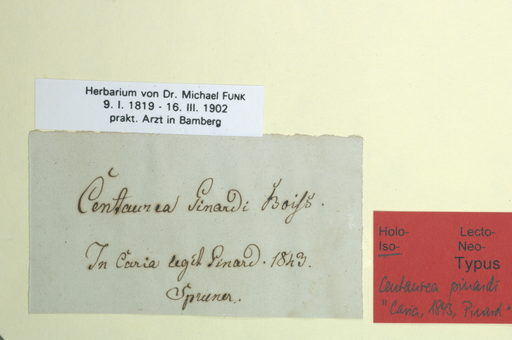 Herbarium von Dr. Michael FUNK
9. I. 1819 - 16. III. 1902
prakt. Arzt in Bamberg
Centaurea Pinardi Boiss.
In Caria legit Pinard. 1843.
Spruner.
Holo- Lecto-
Iso- Neo-
Typus
Centaurea pinardi
"Caria, 1843, Pinard"